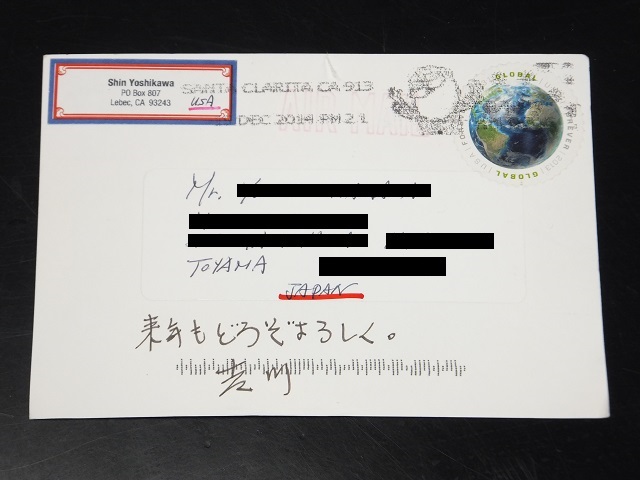 Shin Yoshikawa
PO Box 807
Lebec, CA 93243 USA
SANTA CLARITA CA 913
DEC 2014 PM 2 1
GLOBAL
FOREVER
GLOBAL
USA
Mr.
TOYAMA
JAPAN
来年もどうぞよろしく。
吉川